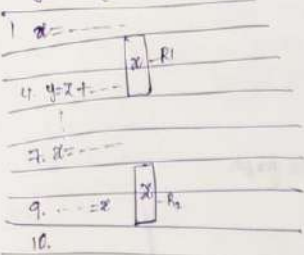 1 x= - - - - -
x - R1
4. y=x+ - - -
7. x= - - - -
x - R2
9. - - - = x
10.